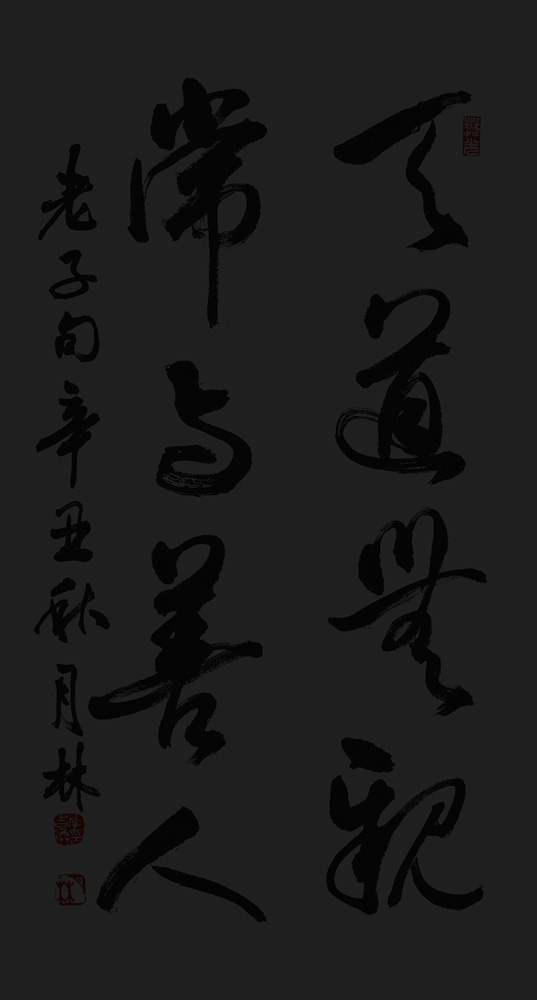 天道無親
常与善人
老子句辛丑秋月林